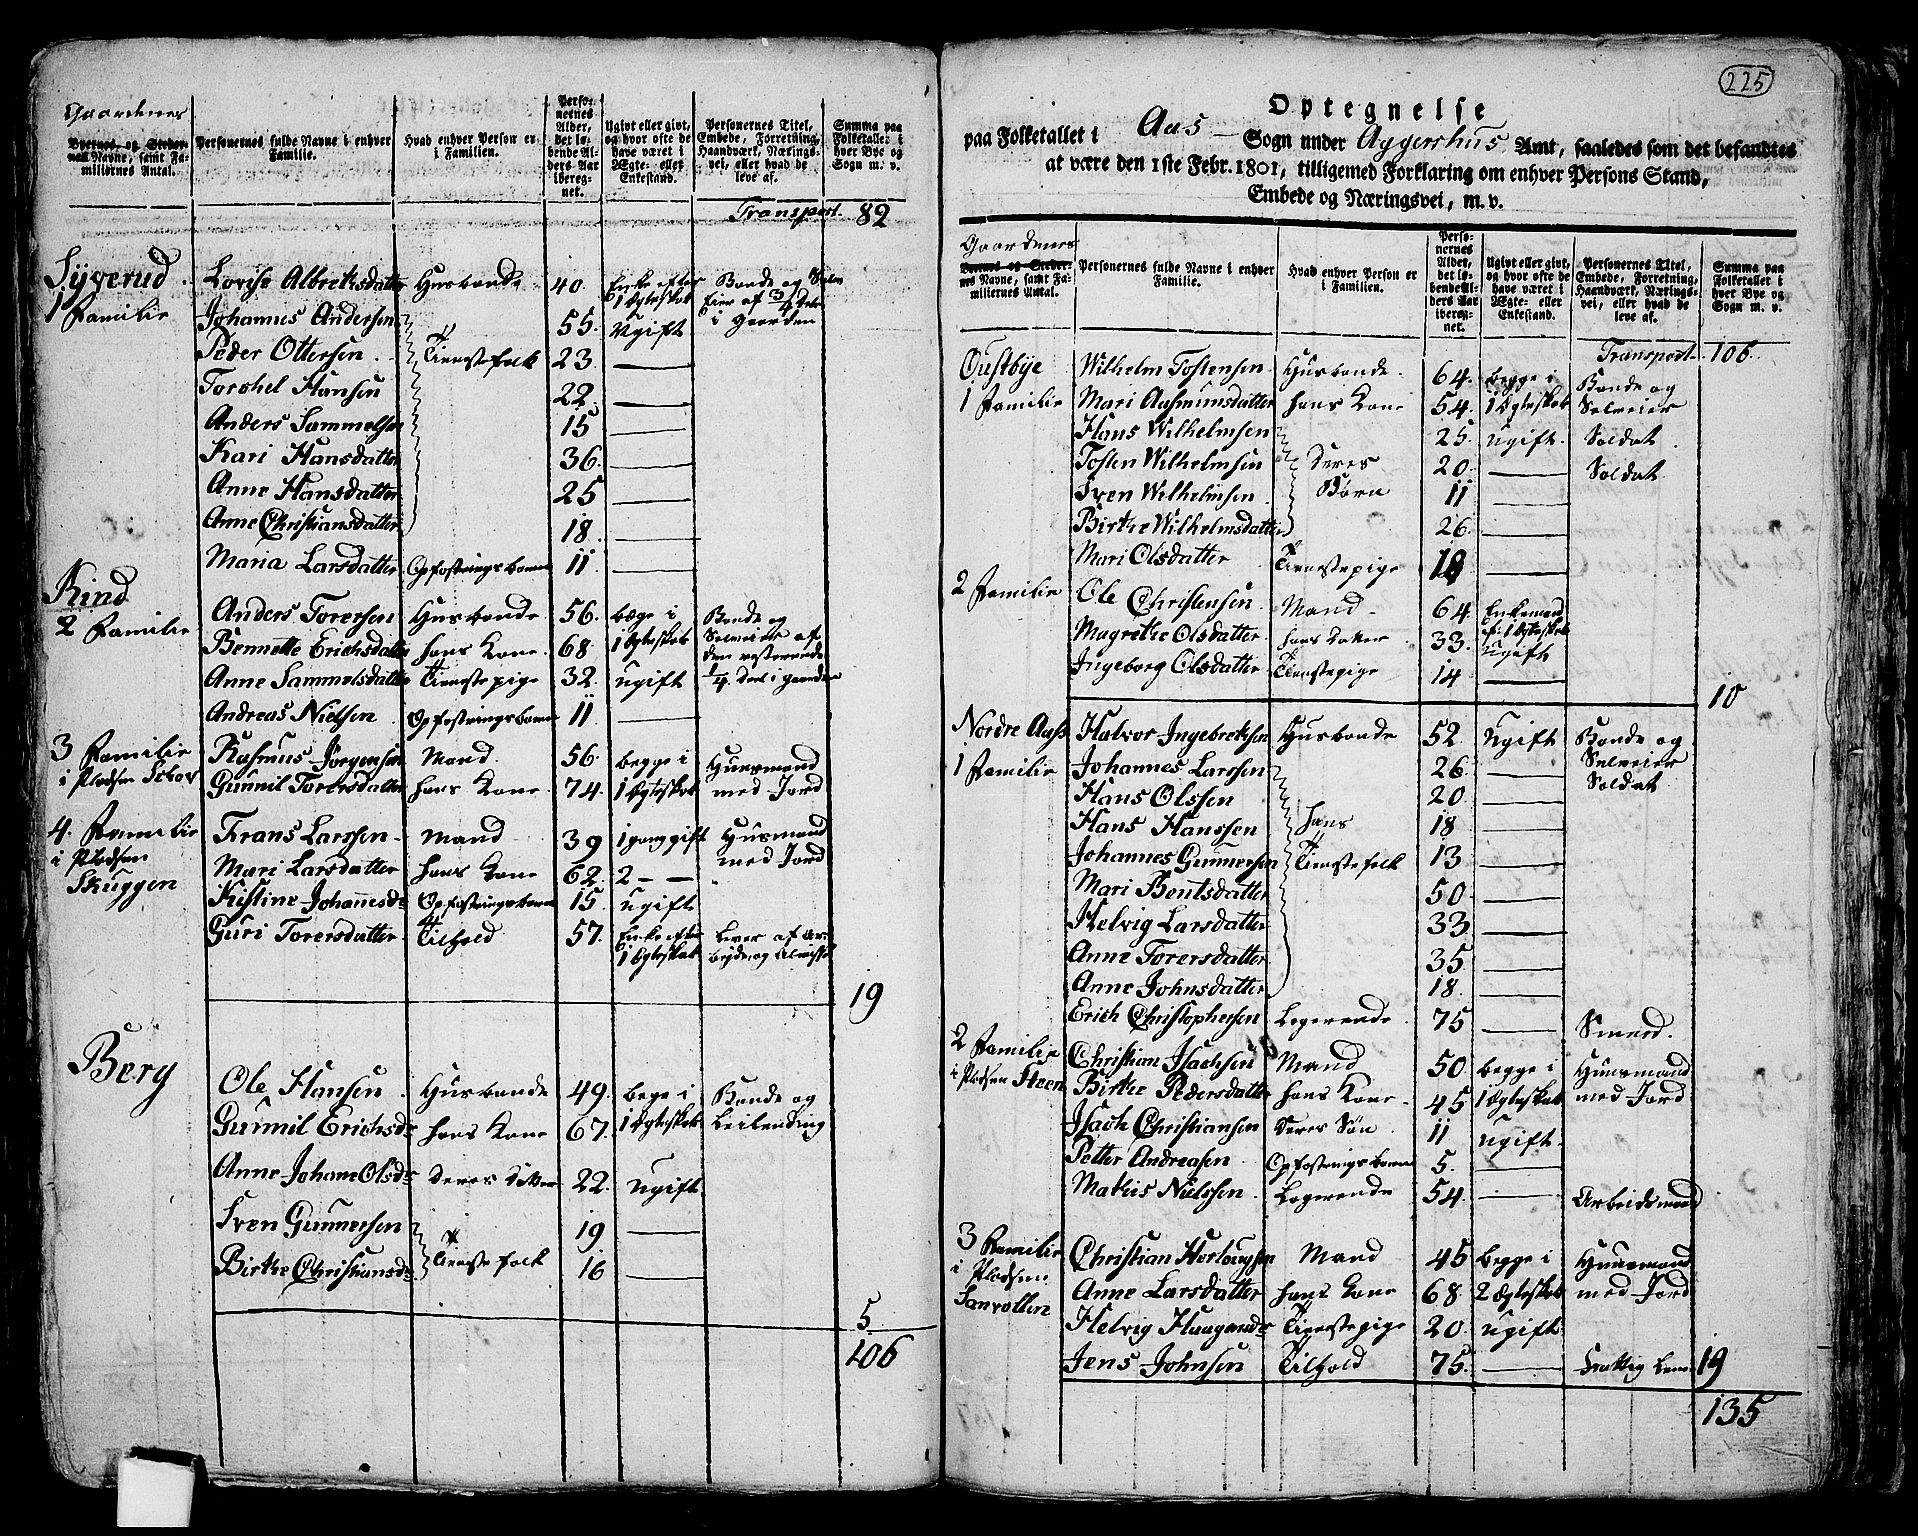 Gaardenes
Byernes og Stedernes Navne, samt Familiernes Antal. Personernes fulde Navne i enhver Familie. Hvad enhver Person er i Familien. Personernes Alder, det løbende Alders Aar iberegnet. Ugivt eller givt, og hvor ofte de have været i Ægte- eller Enkestand. Personernes Titel, Embede, Forretning, Haandværk, Næringsvei, eller hvad de leve af. Summa paa Folketallet i hver Bye og Sogn m. v.
Transport 82
Sÿgerud Lovise Albrektsdatter Husbonde 40. Enke efter 1 Ægteskab Bonde og Selv Eier af 3/4 Deel i Gaarden
1 Familie Johannes Andersen 55. Ugift
Peder Ottersen Tienestefolk 23 —
Torshel Hansen 22 —
Anders Sammelsen 15 —
Kari Hansdatter 36 —
Anne Hansdatter 25 —
Anne Christiansdatter 18 —
Maria Larsdatter Opfostringsbarn 11 —
Rind
2 Familie Anders Torersen Husbonde 56. bæge i 1 Ægteskab Bonde og Selveier af den resterende 1/4 Deel i Gaarden
Bennette Erichsdatter hans Kone 68.
Anne Sammelsdatter Tienestepige 32. ugift
Andreas Nielsen Opfostringsbarn 11 —
3 Familie i Pladsen Rasmus Jørgensen Mand 56. begge i 1 Ægteskab Huusmand med Jord
Gunnil Torersdatter hans Kone 74.
4. Familie i Pladsen Skuggen Frans Larssen Mand 39 1 gang gift Husmand med Jord
Mari Larsdatter hans Kone 62. 2 — —
Kistine Johannesdr Opfostringsbarn 15 ugift
Guri Torersdatter Tilhold 57. Enke efter 1 Ægteskab Lever af Arbeyde og Almisse
19
Berg
Ole Hansen Husbonde 49. bege i 1 Ægteskab Bonde og Leilending
Gunnil Erichsdr hans Kone 67.
Anne Johane Olsdr deres Datter 22. ugift
Sven Gunnersen Tienestefolk 19 —
Birthe Christiansdr 16 —
5
106
225
Optegnelse
paa Folketallet i Aas Sogn under Aggershus Amt, saaledes som det befandtes
at være den 1ste Febr. 1801, tilligemed Forklaring om enhver Persons Stand,
Embede og Næringsvei, m. v.
Gaardenes
Byernes og Stedernes Navne, samt Familiernes Antal. Personernes fulde Navne i enhver Familie. Hvad enhver Person er i Familien. Personernes Alder, det løbende Alders Aar iberegnet. Ugivt eller givt, og hvor ofte de have været i Ægte- eller Enkestand. Personernes Titel, Embede, Forretning, Haandværk, Næringsvei, eller hvad de leve af. Summa paa Folketallet i hver Bye og Sogn m. v.
Transport 106
Oustbÿe Wilhelm Tostensen Husbonde 64. begge i 1 Ægteskab Bonde og Selveier
1 Familie Mari Aasmunsdatter hans Kone 54.
Hans Wilhelmsen Deres Børn 25. ugift Soldat
Tosten Wilhelmsen 20 — Soldat
Sven Wilhelmsen 11 —
Birthe Wilhelmsdatter 26 —
Mari Olsdatter Tienestepige 18 —
2 Familie Ole Christensen Mand 64 Enkemand ef: 1 Ægteskab
Magrethe Olsdatter hans Datter 33. ugift
Ingeborg Olsdatter Tienestepige 14 —
10
Nordre Aass Halvor Ingebretsen Husbonde 52. Ugift Bonde og Selveier
1 Familie Johannes Larssen hans Tienestefolk 26 — Soldat
Hans Olssen 20 —
Hans Hanssen 18 —
Johannes Gunnersen 13 —
Mari Bentsdatter 50 —
Helvig Larsdatter 33 —
Anne Torersdatter 35 —
Anne Johnsdatter 18 —
Erich Christophersen Logerende 75 — Smed.
2 Familie i Pladsen Steen Christian Isachsen Mand 50 begge i 1 Ægteskab Huusmand med Jord
Birthe Pedersdatter hans Kone 45
Isach Christiansen Deres Søn 11 ugift
Petter Andreasen Opfostringsbarn 5 —
Mathis Nielssen Logerende 54. — Arbeidsmand
3 Familie i Pladsen Christian Herlougsen Mand 45 begge i 2 Ægteskab Huusmand med Jord
Anne Larsdatter hans Kone 68
Helvig Haagensdr Tienestepige 20 ugift
Jens Johnsen Tilhold 75. — Fattig Lem 19
135